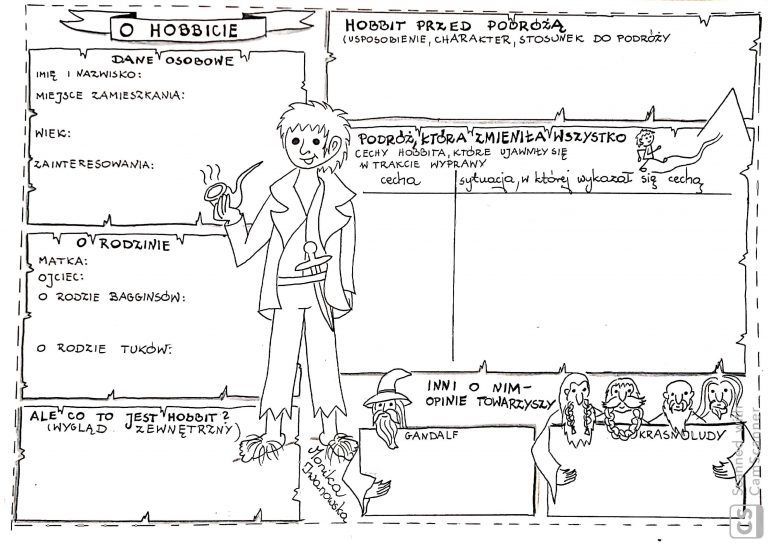 O HOBBICIE
DANE OSOBOWE
IMIĘ I NAZWISKO:
MIEJSCE ZAMIESZKANIA:
WIEK:
ZAINTERESOWANIA:
O RODZINIE
MATKA:
OJCIEC:
O RODZIE BAGGINSÓW:
O RODZIE TUKÓW:
ALE CO TO JEST HOBBIT?
(WYGLĄD ZEWNĘTRZNY)
Monika
Iwanowska
HOBBIT PRZED PODRÓŻĄ
(USPOSOBIENIE, CHARAKTER, STOSUNEK DO PODRÓŻY
PODRÓŻ, KTÓRA ZMIENIŁA WSZYSTKO
CECHY HOBBITA, KTÓRE UJAWNIŁY SIĘ
W TRAKCIE WYPRAWY
cecha
sytuacja, w której wykazał się cechą
INNI O NIM-
OPINIE TOWARZYSZY
GANDALF
KRASNOLUDY
CS Scanned with
CamScanner